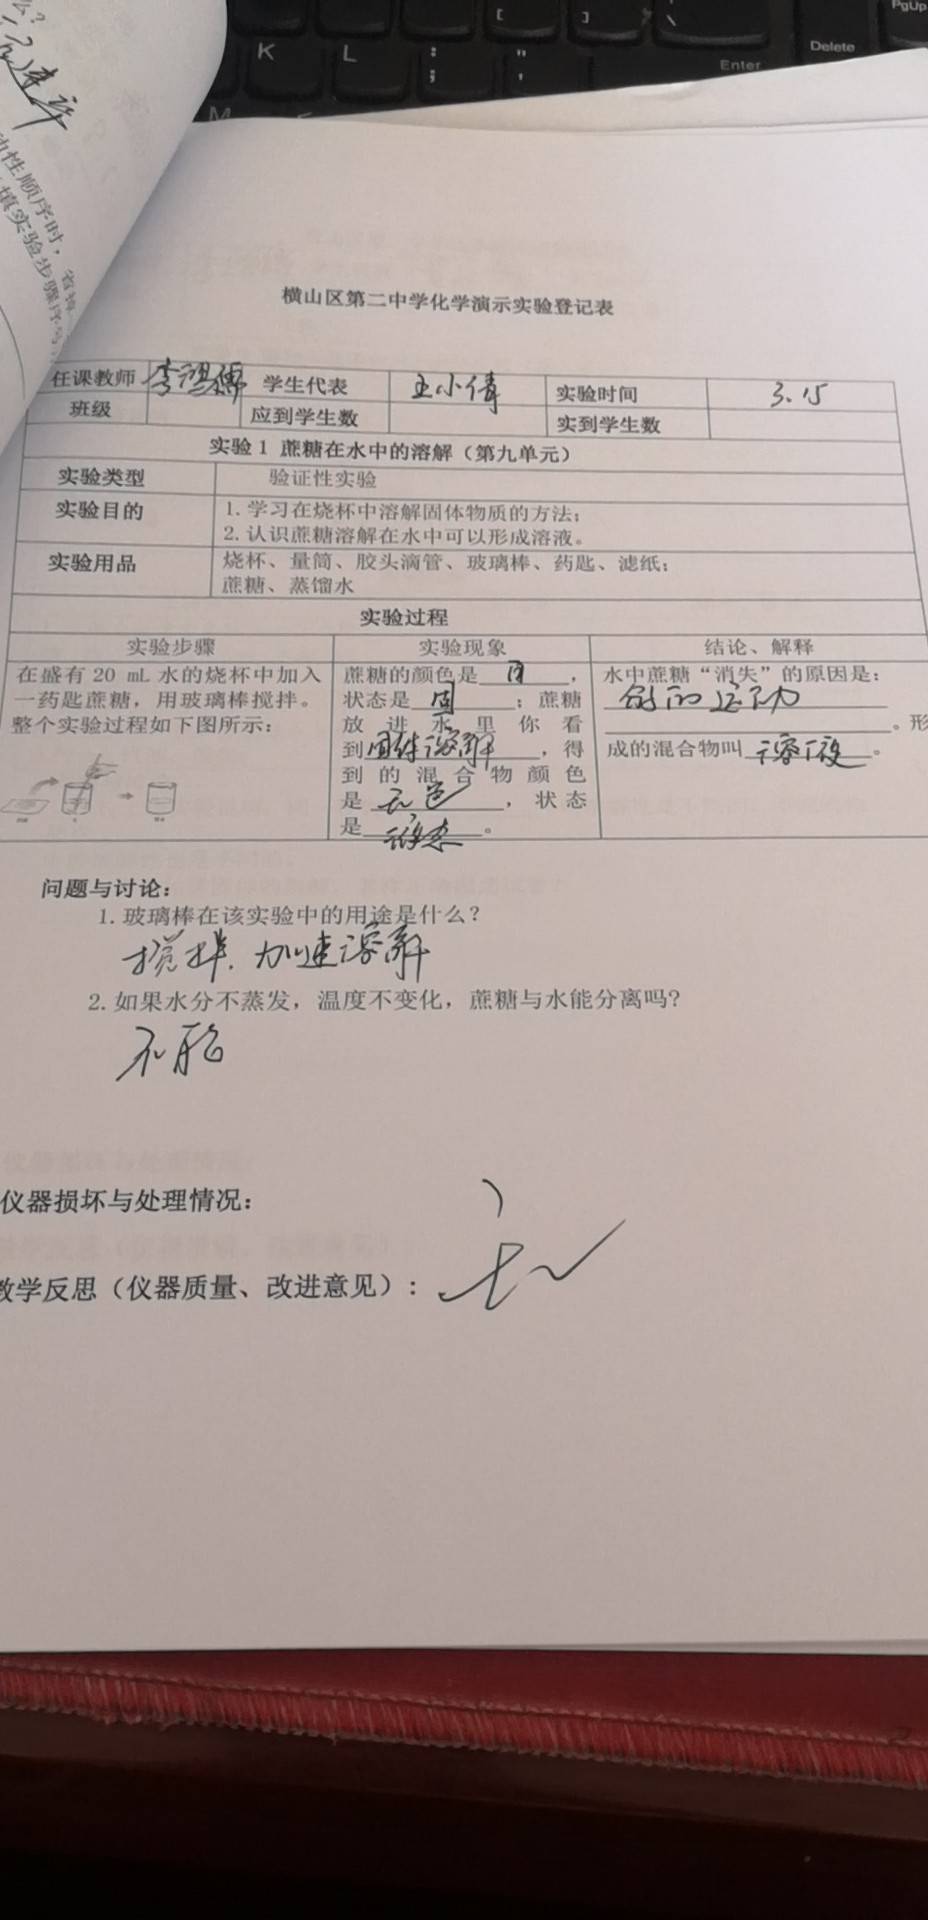 PgUp
[
]
\
K
L
:
;
"
'
Delete
Enter
M
么?
动性顺序时,
填实验步骤序号
横山区第二中学化学演示实验登记表
任课教师 李鸿儒 学生代表 王小倩 实验时间 3.15
班级 应到学生数 实到学生数
实验1 蔗糖在水中的溶解（第九单元）
实验类型 验证性实验
实验目的 1.学习在烧杯中溶解固体物质的方法；
2.认识蔗糖溶解在水中可以形成溶液。
实验用品 烧杯、量筒、胶头滴管、玻璃棒、药匙、滤纸；
蔗糖、蒸馏水
实验过程
实验步骤 实验现象 结论、解释
在盛有 20 mL 水的烧杯中加入
一药匙蔗糖，用玻璃棒搅拌。
整个实验过程如下图所示：
蔗糖的颜色是 白 ，
状态是 固 ；蔗糖
放进水里你看
到 固体溶解 ，得
到的混合物颜色
是 无色 ，状态
是 液态 。
水中蔗糖“消失”的原因是：
的运动
。形
成的混合物叫 溶液 。
问题与讨论：
1.玻璃棒在该实验中的用途是什么？
搅拌、加速溶解
2.如果水分不蒸发，温度不变化，蔗糖与水能分离吗？
不能
仪器损坏与处理情况：
教学反思（仪器质量、改进意见）：
无